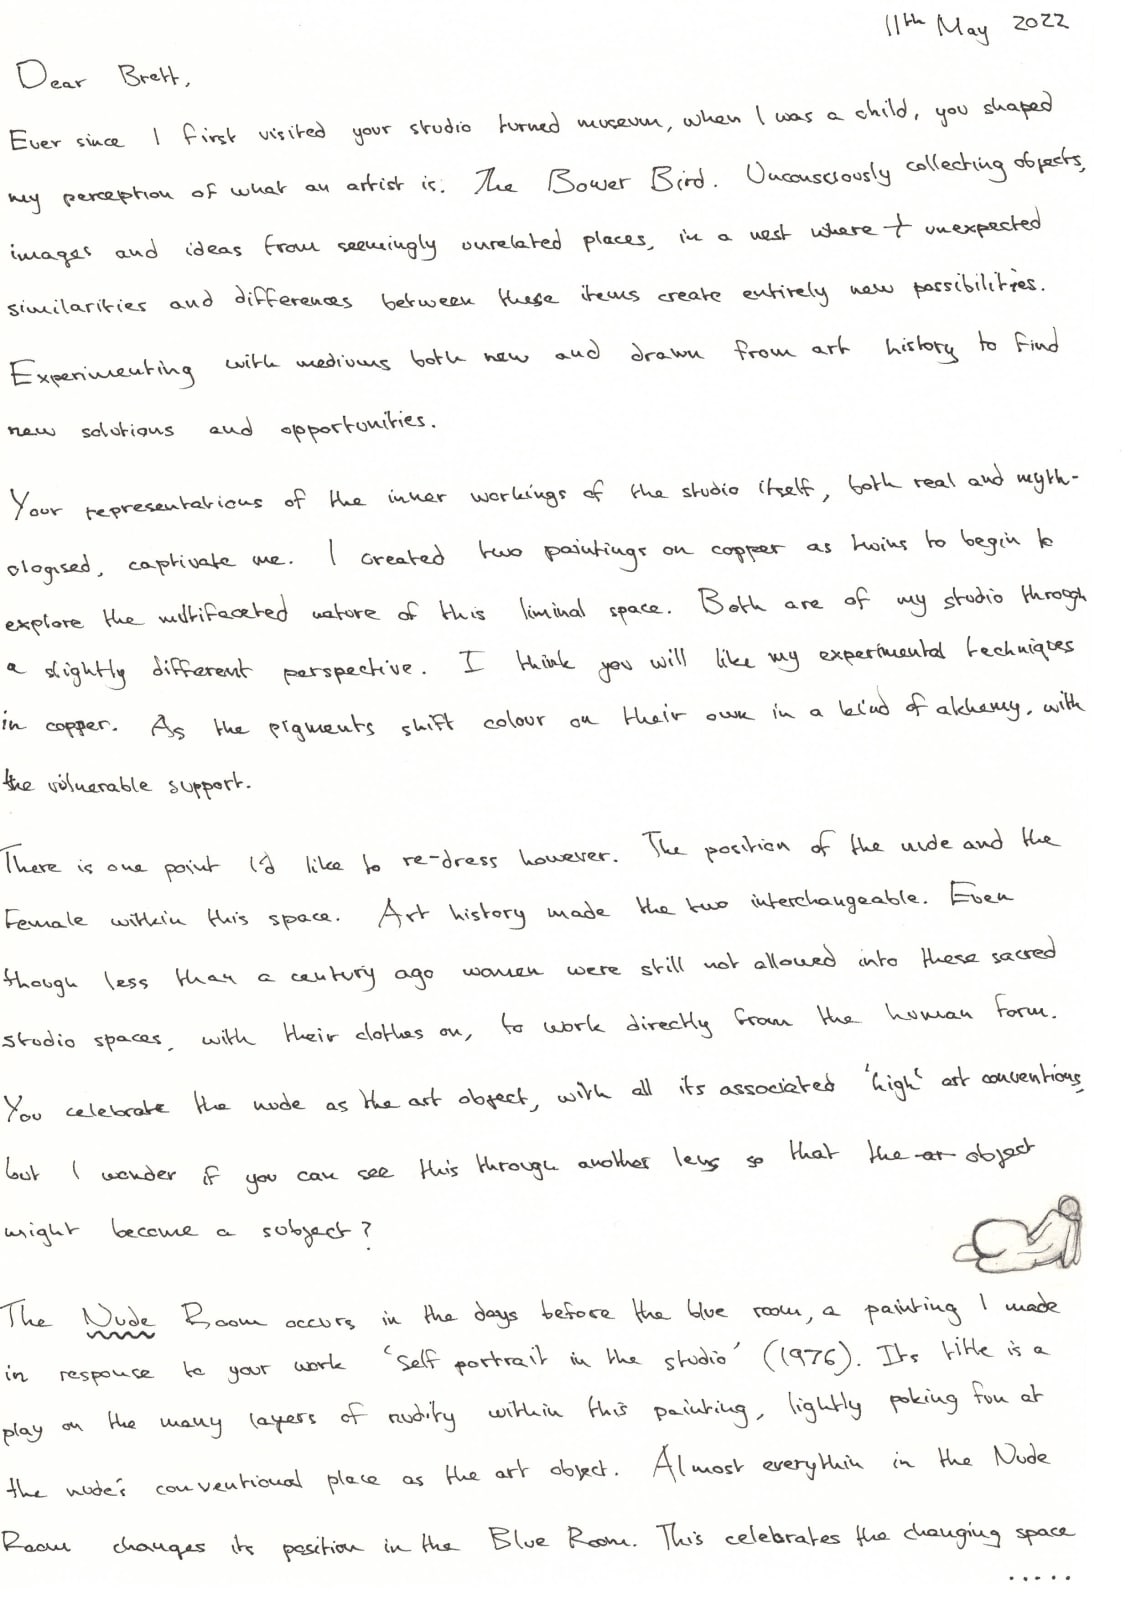 11th May 2022
Dear Brett,
Ever since I first visited your studio turned museum, when I was a child, you shaped
my perception of what an artist is: The Bower Bird. Unconsciously collecting objects,
images and ideas from seemingly unrelated places, in a nest where unexpected
similarities and differences between these items create entirely new possibilities.
Experimenting with mediums both new and drawn from art history to find
new solutions and opportunities.
Your representations of the inner workings of the studio itself, both real and myth-
ologised, captivate me. I created two paintings on copper as twins to begin to
explore the multifaceted nature of this liminal space. Both are of my studio through
a slightly different perspective. I think you will like my experimental techniques
in copper. As the pigments shift colour on their own in a kind of alchemy, with
the vulnerable support.
There is one point I'd like to re-dress however. The position of the nude and the
Female within this space. Art history made the two interchangeable. Even
though less than a century ago women were still not allowed into these sacred
studio spaces, with their clothes on, to work directly from the human form.
You celebrate the nude as the art object, with all its associated 'high' art conventions,
but I wonder if you can see this through another lens so that the ar object
might become a subject?
The Nude Room occurs in the days before the blue room, a painting I made
in response to your work 'Self portrait in the studio' (1976). Its title is a
play on the many layers of nudity within this painting, lightly poking fun at
the nude's conventional place as the art object. Almost everythin in the Nude
Room changes its position in the Blue Room. This celebrates the changing space
.....